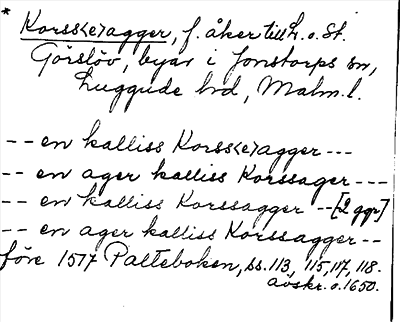 * Korss<e>agger, f. åker till L. o. St.
Görslöv, byar i Jonstorps sn,
Luggude hd, Malm. l.
-- en kalliss Korss<e>agger ---
-- en ager kalliss Korssager ---
-- en kalliss Korssagger --[2 ggr]
-- en ager kalliss Korssagger --
före 1577 Palteboken, ss. 113, 115, 117, 118.
avskr. o. 1650.